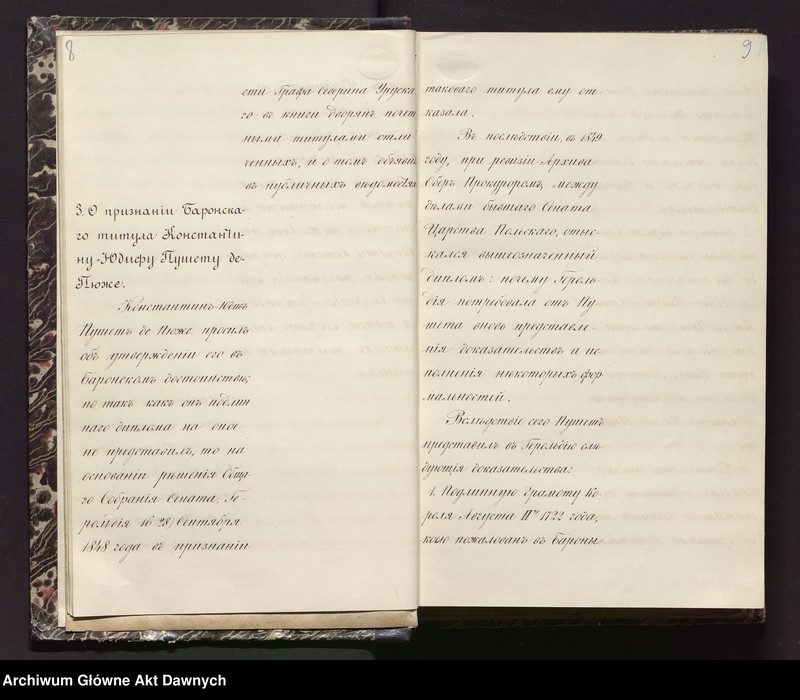 8
сти Графа Северина Уруска-
го въ книги дворянъ почет-
ными титулами отли-
ченныхъ, и о томъ объявить
въ публичныхъ вѣдомостяхъ
3. О признаніи Баронска-
го титула Константи-
ну-Юдифу Пушету де-
Пюже.
Константинъ-Юдифъ
Пушетъ де Пюже просилъ
объ утвержденіи его въ
Баронскомъ достоинствѣ;
но такъ какъ онъ подлин
наго диплома на оное
не представилъ, то на
основаніи рѣшенія Обща
го Собранія Сената, Ге-
рольдія 16/28 Сентября
1848 года въ признаніи
9
таковаго титула ему от-
казала.
Въ послѣдствіи, въ 1849
году, при ревизіи Архива
Оберъ Прокуроромъ, между
дѣлами бывшаго Сената
Царства Польскаго, отыс-
кался вышеозначенный
дипломъ: почему Героль-
дія потребовала отъ Пу
шета вновь представле-
нія доказательствъ и ис
полненія нѣкоторыхъ фор
мальностей.
Вслѣдствіе сего Пушетъ
представилъ въ Герольдію слѣ
дующія доказательства:
1. Подлинную Грамоту Ко
роля Августа IIго 1722 года,
коею пожалованъ въ Бароны
Archiwum Główne Akt Dawnych